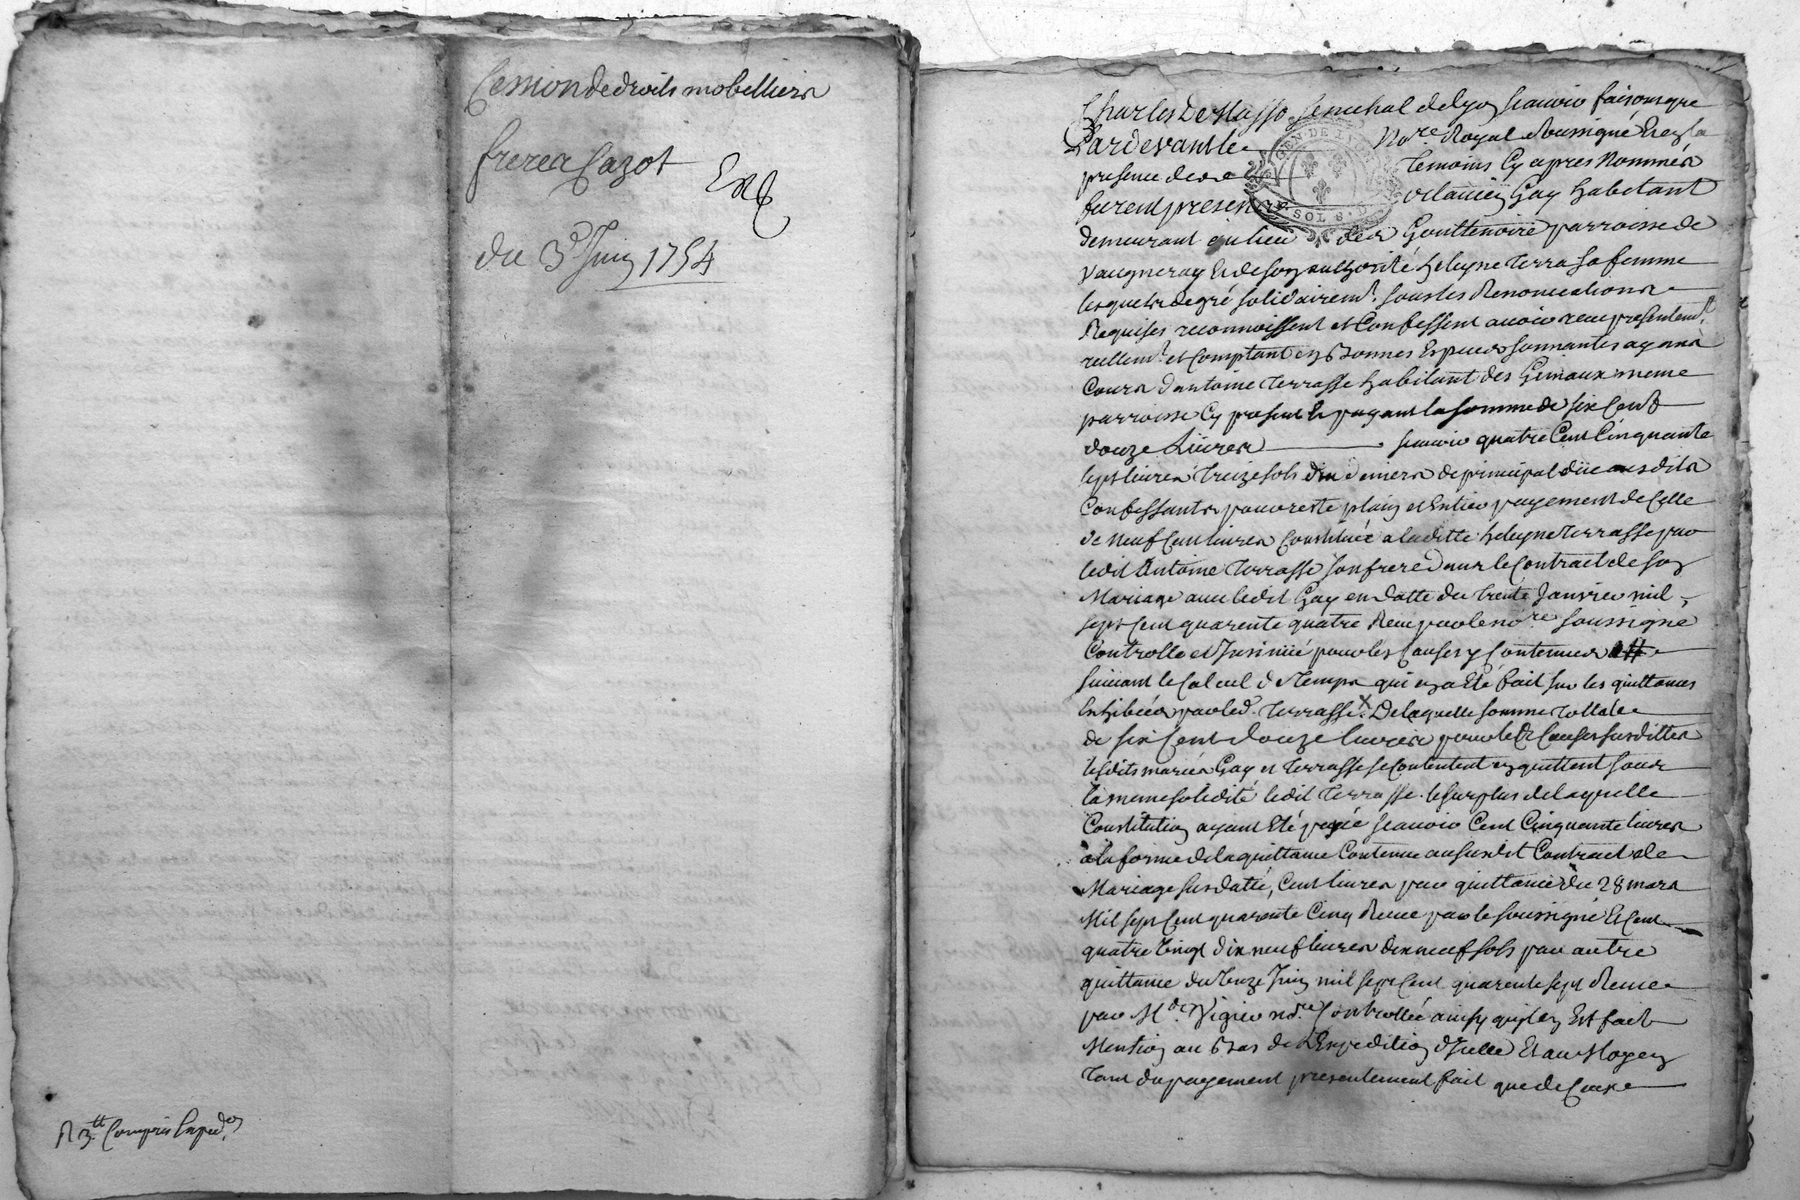 Cession de droits mobelliers
frerea Cazot
Exd
du 3e Juin 1754
R 3tt Compris Exped.on
Charles De Masso Senechal de Lyon scauoir faisons que
Pardevant le No.re Royal soussigné Et en la
presence des temoins Cy apres Nommés
furent presents Gay habitant
demeurant au lieu de Gouttenoire parroisse de
Vaugneray Et de son authorité heleyne terra sa femme
lesquels de gré solidairem.t sous les Renonciations
Requises reconnoissent et Confessent auoir receu presentem.t
reellem.t et Comptant en Bonnes Especes sonnantes ayans
Cours d'antoine terrasse habitant des Gemaux meme
parroisse Cy present Et payant la somme de six Cent
douze Liures scauoir quatre Cent Cinquante
sept liures treize sols deniers de principal düe ausdits
Confessants pour reste plein et Entier payement de Celle
de neuf Cent liures Constituée a laditte heleyne terrasse par
ledit Antoine terrasse son frere dans le Contract de son
Mariage auec ledit Gay en datte du trente Januier mil
sept Cent quarente quatre Receu par le no.re soussigné
Controllé et Insinué pour les Causes y Contenues
suiuant le Calcul de temps qui en a Eté fait sur les quittances
Exhibées par led. terrasse x De laquelle somme tottale
de six Cent douze liures pour les Causes susdittes
lesdits mariés Gay et terrasse se Contentent en quittent sous
la meme solidité ledit terrasse le surplus de laquelle
Constitution ayant Eté payée scauoir Cent Cinquante liures
a la forme de la quittance Contenue au susdit Contract de
Mariage susdatté, Cent liures par quittance du 28 mars
Mil sept Cent quarente Cinq Receue par le soussigné Et Cent
quatre Vingt dix neuf liures dix neuf sols par autre
quittance du Juin mil sept Cent quarente sept Receue
par M.e Vigier no.re Controllée ainsy quil en Est fait
Mention au Bas de L'Expedition d'Icelle Et au Moyen
tant du payement presentement fait que de Ceux
GEN DE LYON
SOLS